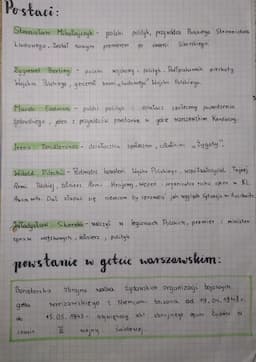 Postaci:
Stanisław Mikołajczyk - polski polityk, przywódca Polskiego Stronnictwa
Ludowego. Został nowym premierem po śmierci Sikorskiego.
Zygmunt Berling - polityk. Podpułkownik piechoty
Wojska Polskiego, generał broni „ludowego” Wojska Polskiego.
Marek Edelman - polski polityk i działacz
jeden z przywódców powstania w getcie warszawskim. Kardiolog.
Irena Sendlerowa - działaczka społeczna, członkini „Żegoty”.
Witold Pilecki - Rotmistrz kawalerii Wojska Polskiego, współzałożyciel Tajnej
Armii Polskiej, żołnierz Armii Krajowej, więzień i organizator ruchu oporu w KL
Auschwitz. Dał złapać się niemcom by sprawdzić jak wygląda sytuacja w Auschwitz.
Władysław Sikorski - walczył w legionach Polskich, premier i minister
spraw wojskowych, żołnierz, polityk
powstanie w getcie warszawskim:
zbrojna walka żydowskich organizacji bojowych
getta warszawskiego z Niemcami tocząca od 19.04.1943r.
do 15.05.1943r. największy akt zbrojnego oporu Żydów w
czasie II wojny światowej.